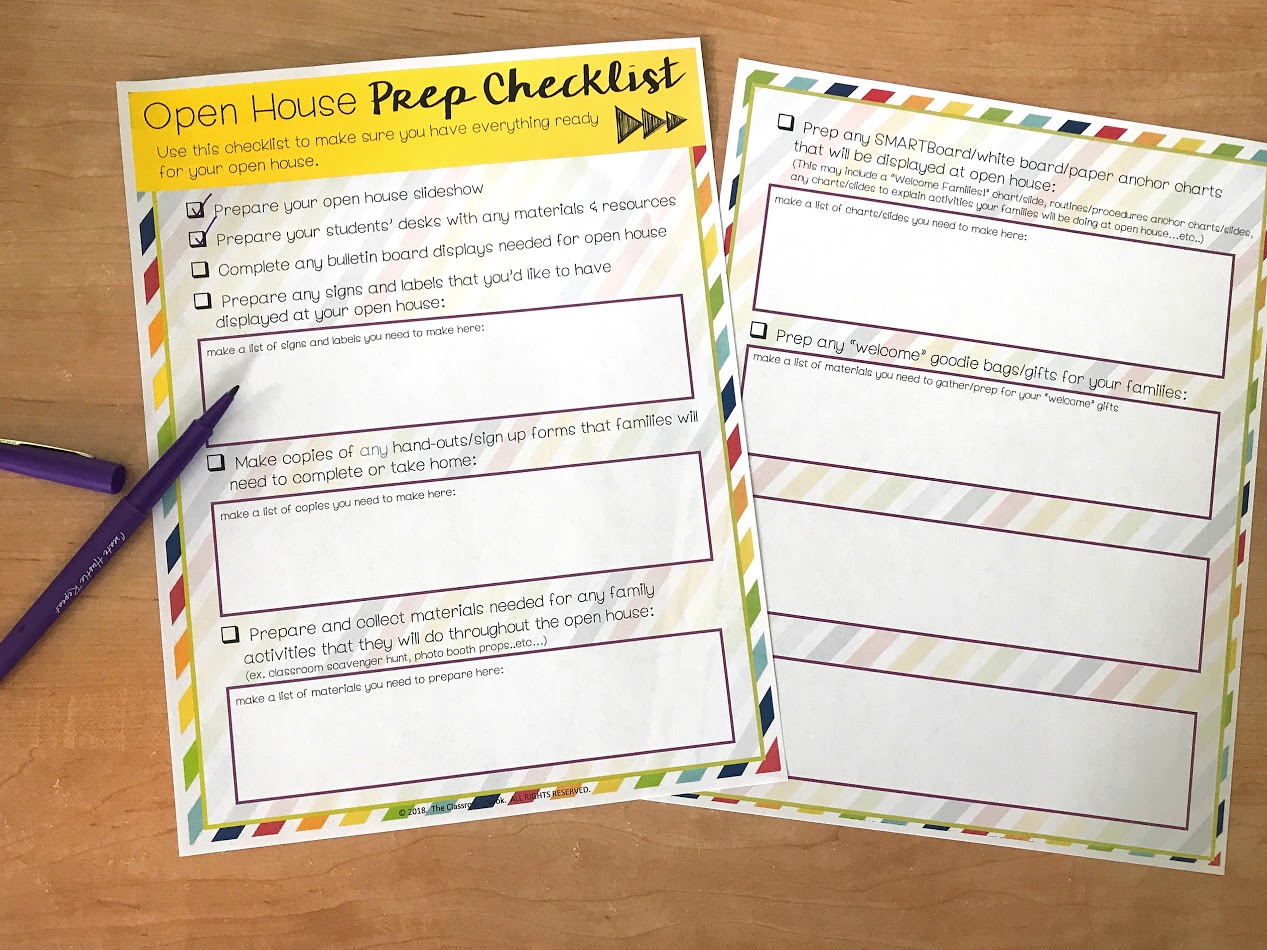 Open House Prep Checklist
Use this checklist to make sure you have everything ready
for your open house.
Prepare your open house slideshow
Prepare your students' desks with any materials & resources
Complete any bulletin board displays needed for open house
Prepare any signs and labels that you'd like to have
displayed at your open house:
make a list of signs and labels you need to make here:
Make copies of any hand-outs/sign up forms that families will
need to complete or take home:
make a list of copies you need to make here:
Prepare and collect materials needed for any family
activities that they will do throughout the open house:
(ex. classroom scavenger hunt, photo booth props..etc...)
make a list of materials you need to prepare here:
© 2018. The Classroom Nook. ALL RIGHTS RESERVED.
Prep any SMARTBoard/white board/paper anchor charts
that will be displayed at open house:
(This may include a "Welcome Families!" chart/slide, routines/procedures anchor charts/slides,
any charts/slides to explain activities your families will be doing at open house...etc..)
make a list of charts/slides you need to make here:
Prep any "welcome" goodie bags/gifts for your families:
make a list of materials you need to gather/prep for your "welcome" gifts
Create Hustle Repeat